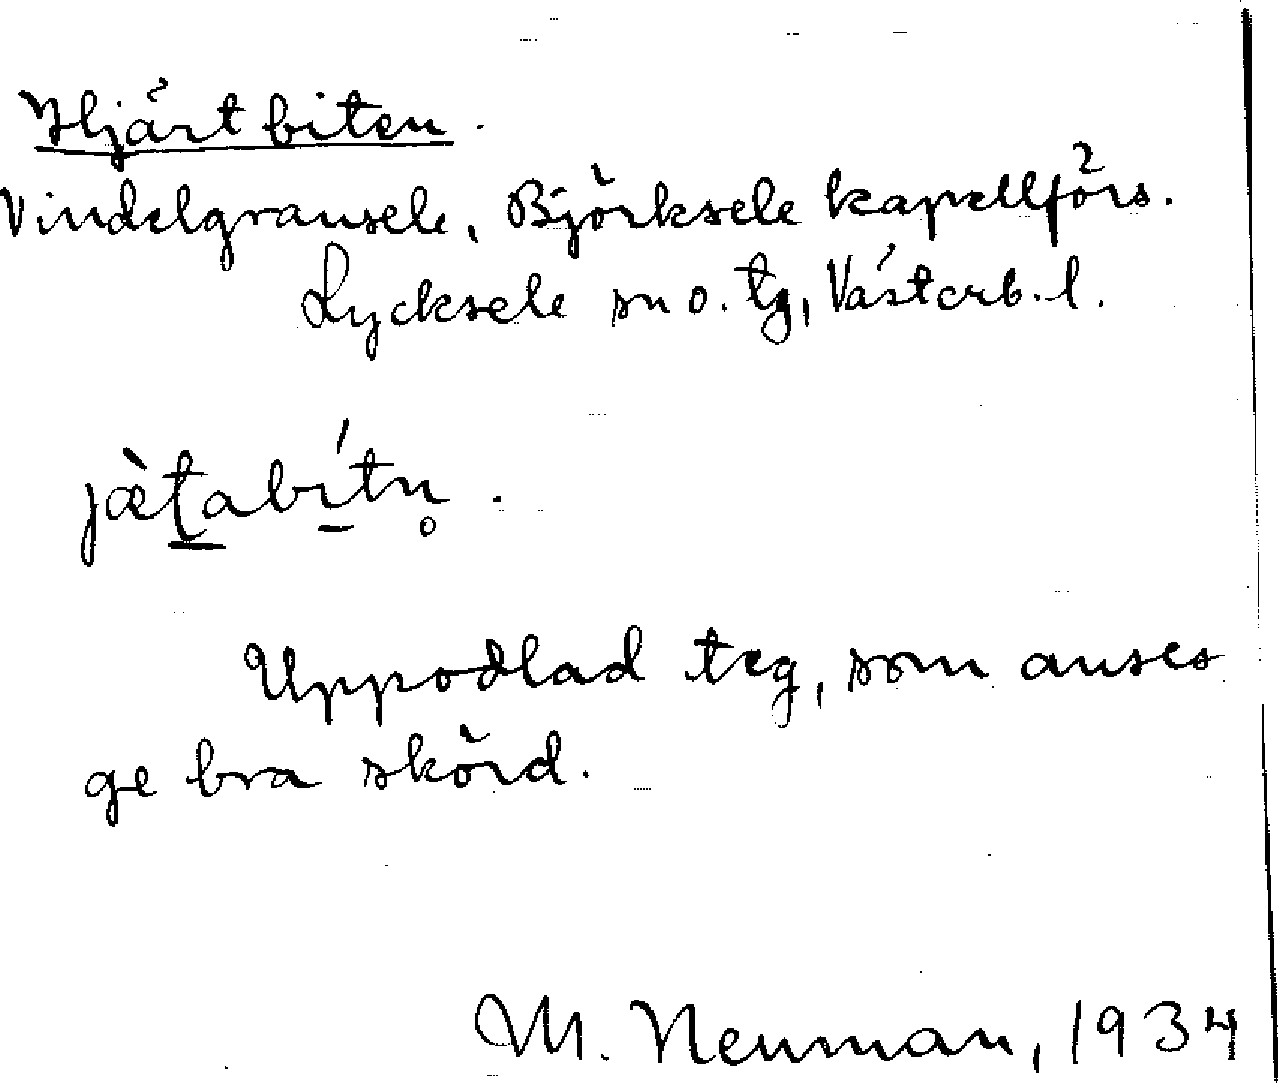 Hjärtbiten.
Vindelgransele, Björksele kapellförs.
Lycksele sn o. tg, Västerb. l.
jæ̀t̠abí̠tn̥.
Uppodlad teg, som anses
ge bra skörd.
M. Neuman, 1934